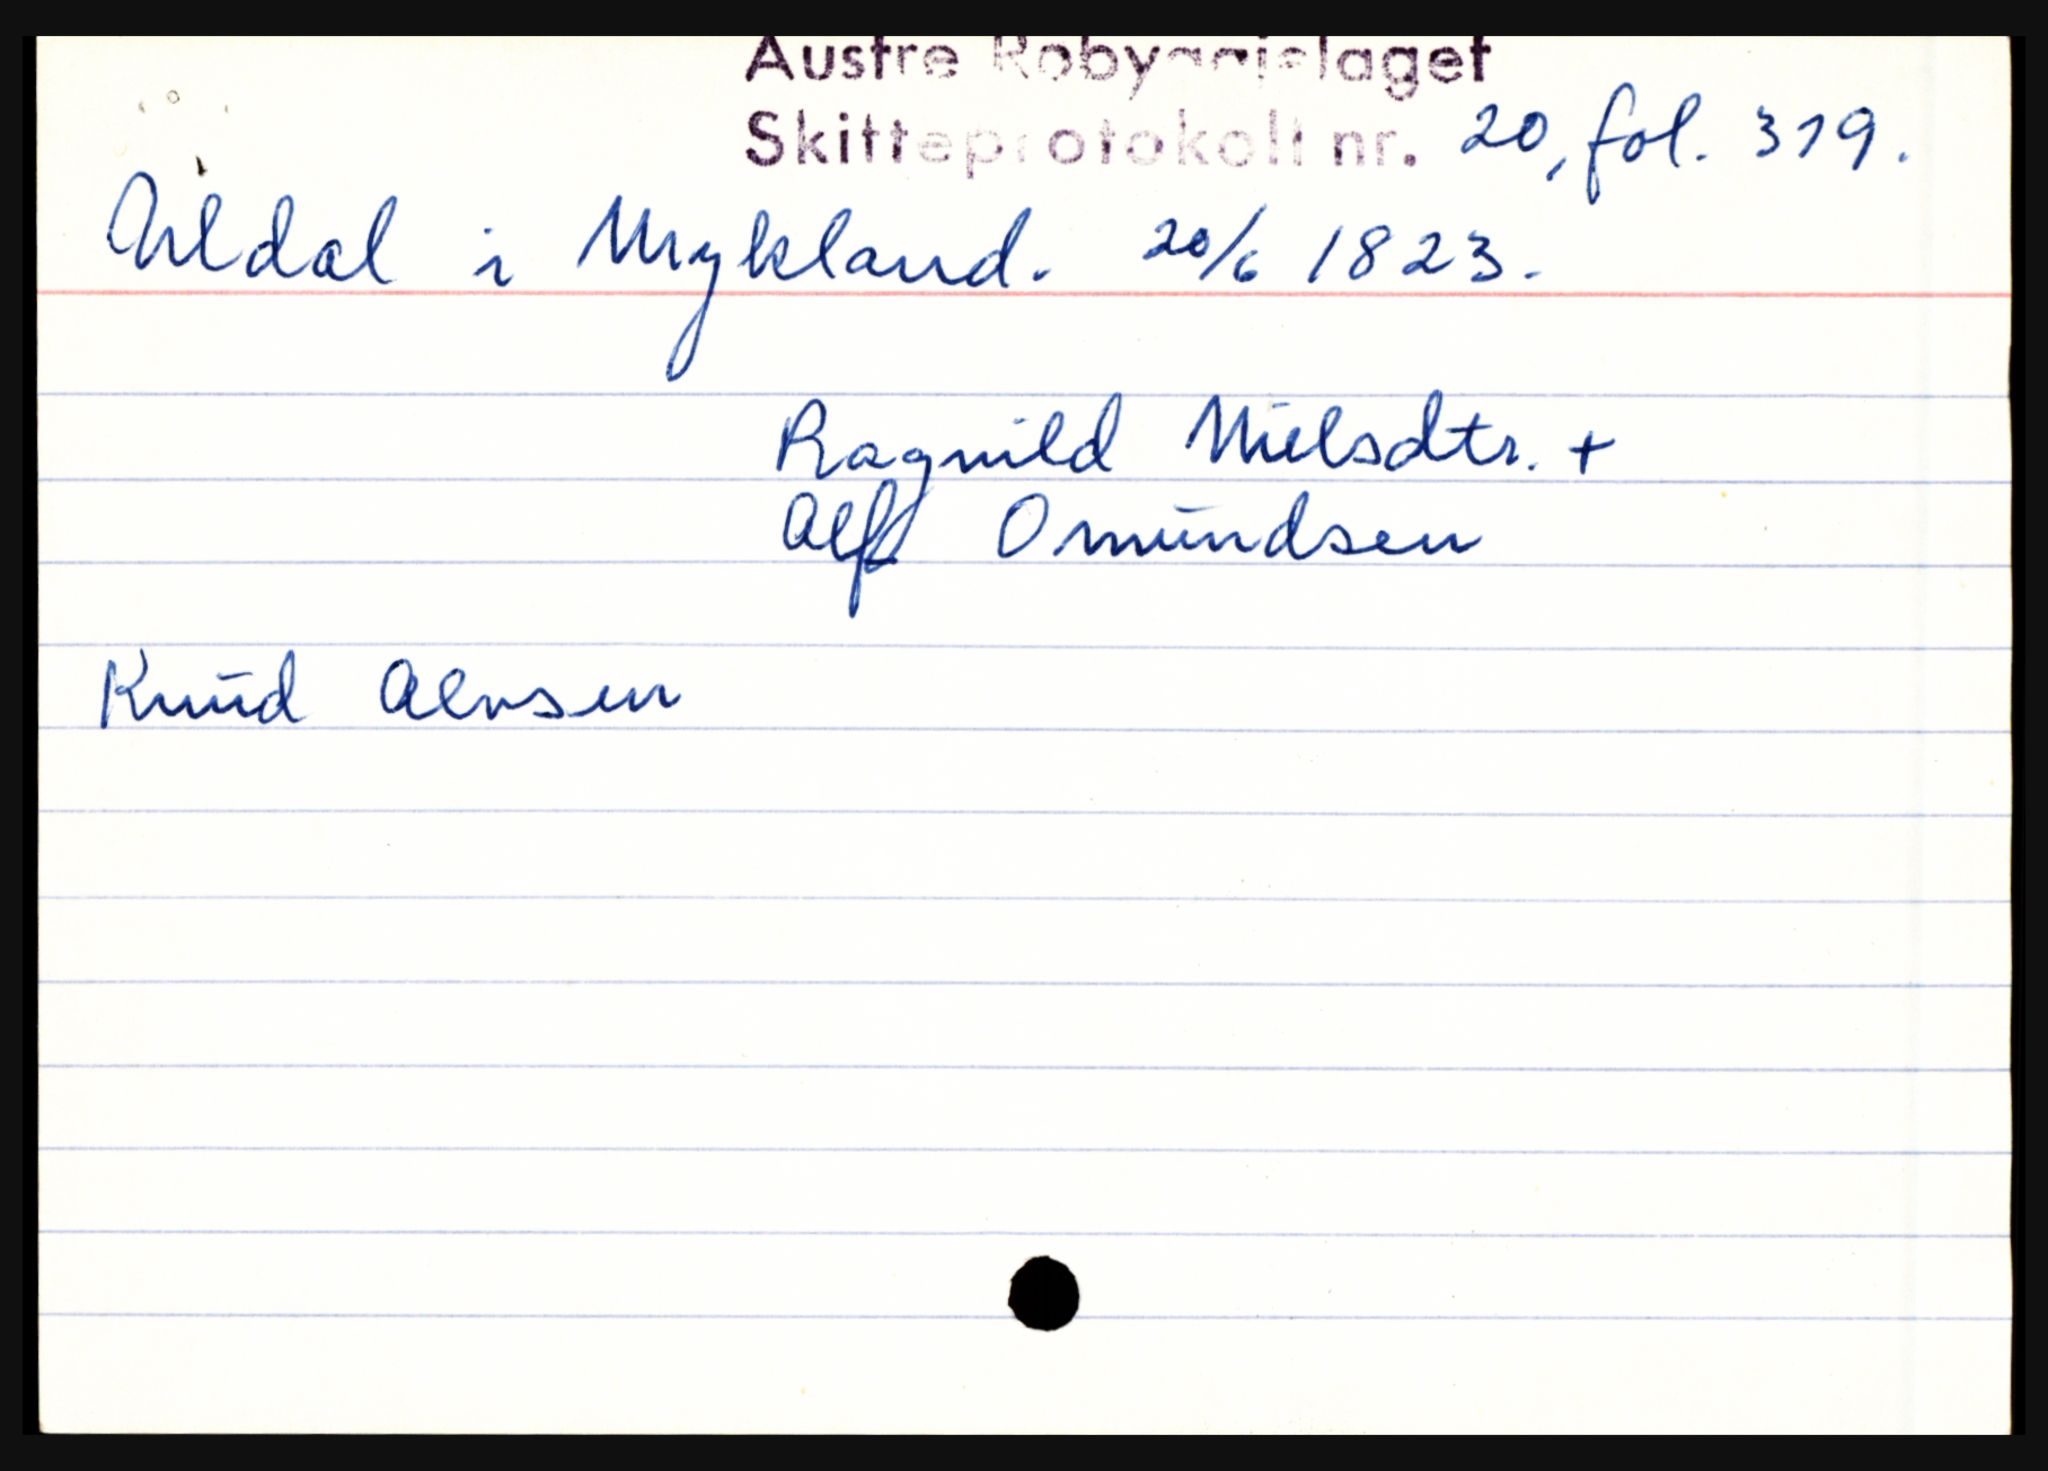 Austre Robyggjelaget
Skitteprotokoll nr. 20, fol. 319.
Uldal i Mykland. 20/6 1823.
Ragnild Nielsdtr. +
Alf Omundsen
Knud Alvsen